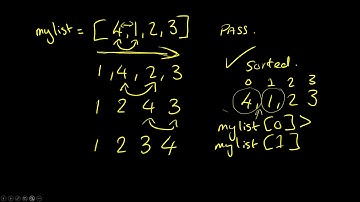 mylist = [4,1,2,3]
1,4,2,3
1 2 4 3
1 2 3 4
PASS.
✓ Sorted.
0 1 2 3
4,1,2 3
mylist[0]>
mylist[1]